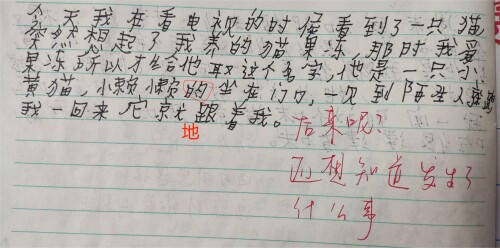 今天我在看电视的时候看到了一只猫
突然想起了我养的猫果冻,那时我爱
果冻所以才给他取这个名字,他是一只小
黄猫,小懒小懒的坐在门口,一见到陌生人就跑
我一回来它就跟着我。
地
后来呢?
还想知道发生了
什么事